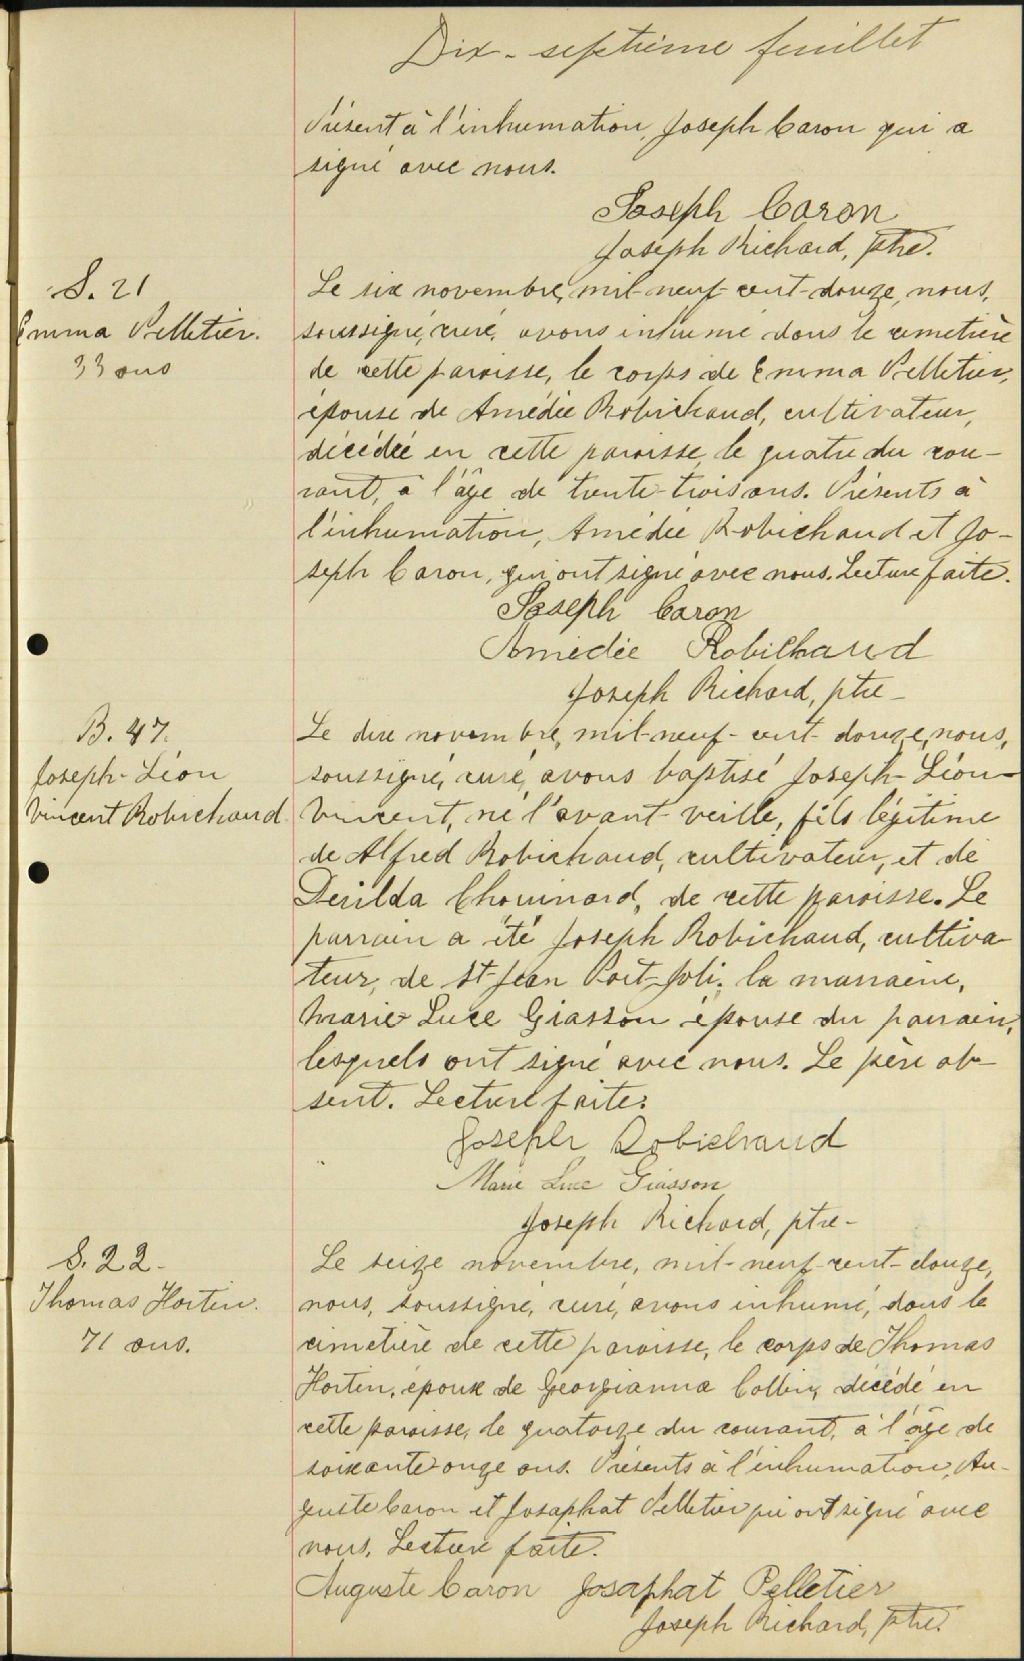 Dix-septième feuillet
Présent à l'inhumation, Joseph Caron qui a
signé avec nous.
Joseph Caron
Joseph Richard, ptre.
S. 21
Emma Pelletier.
33 ans
Le six novembre, mil-neuf-cent-douze, nous,
soussigné, curé, avons inhumé dans le cimetière
de cette paroisse, le corps de Emma Pelletier,
épouse de Amédée Robichaud, cultivateur,
décédée en cette paroisse le quatre du cou-
rant, à l'âge de trente-trois ans. Présents à
l'inhumation, Amédée Robichaud et Jo-
seph Caron, qui ont signé avec nous. Lecture faite.
Joseph Caron
Amédée Robichaud
Joseph Richard, ptre-
B. 47.
Joseph-Léon
Vincent Robichaud
Le dix novembre, mil-neuf-cent-douze, nous,
soussigné, curé, avons baptisé Joseph-Léon-
Vincent, né l'avant-veille, fils légitime
de Alfred Robichaud, cultivateur, et de
Derilda Chouinard, de cette paroisse. Le
parrain a été Joseph Robichaud, cultiva-
teur, de St-Jean Port-Joli; la marraine,
Marie-Luce Giasson épouse du parrain,
lesquels ont signé avec nous. Le père ab-
sent. Lecture faite.
Joseph Robichaud
Marie Luce Giasson
Joseph Richard, ptre-
S. 22-
Thomas Hortin.
71 ans.
Le seize novembre, mil-neuf-cent-douze,
nous, soussigné, curé, avons inhumé, dans le
cimetière de cette paroisse, le corps de Thomas
Hortin, époux de Georgianna Collin, décédé en
cette paroisse, le quatorze du courant, à l'âge de
soixante-onze ans. Présents à l'inhumation, Au-
guste Caron et Josaphat Pelletier qui ont signé avec
nous. Lecture faite.
Auguste Caron Josaphat Pelletier
Joseph Richard, ptre.